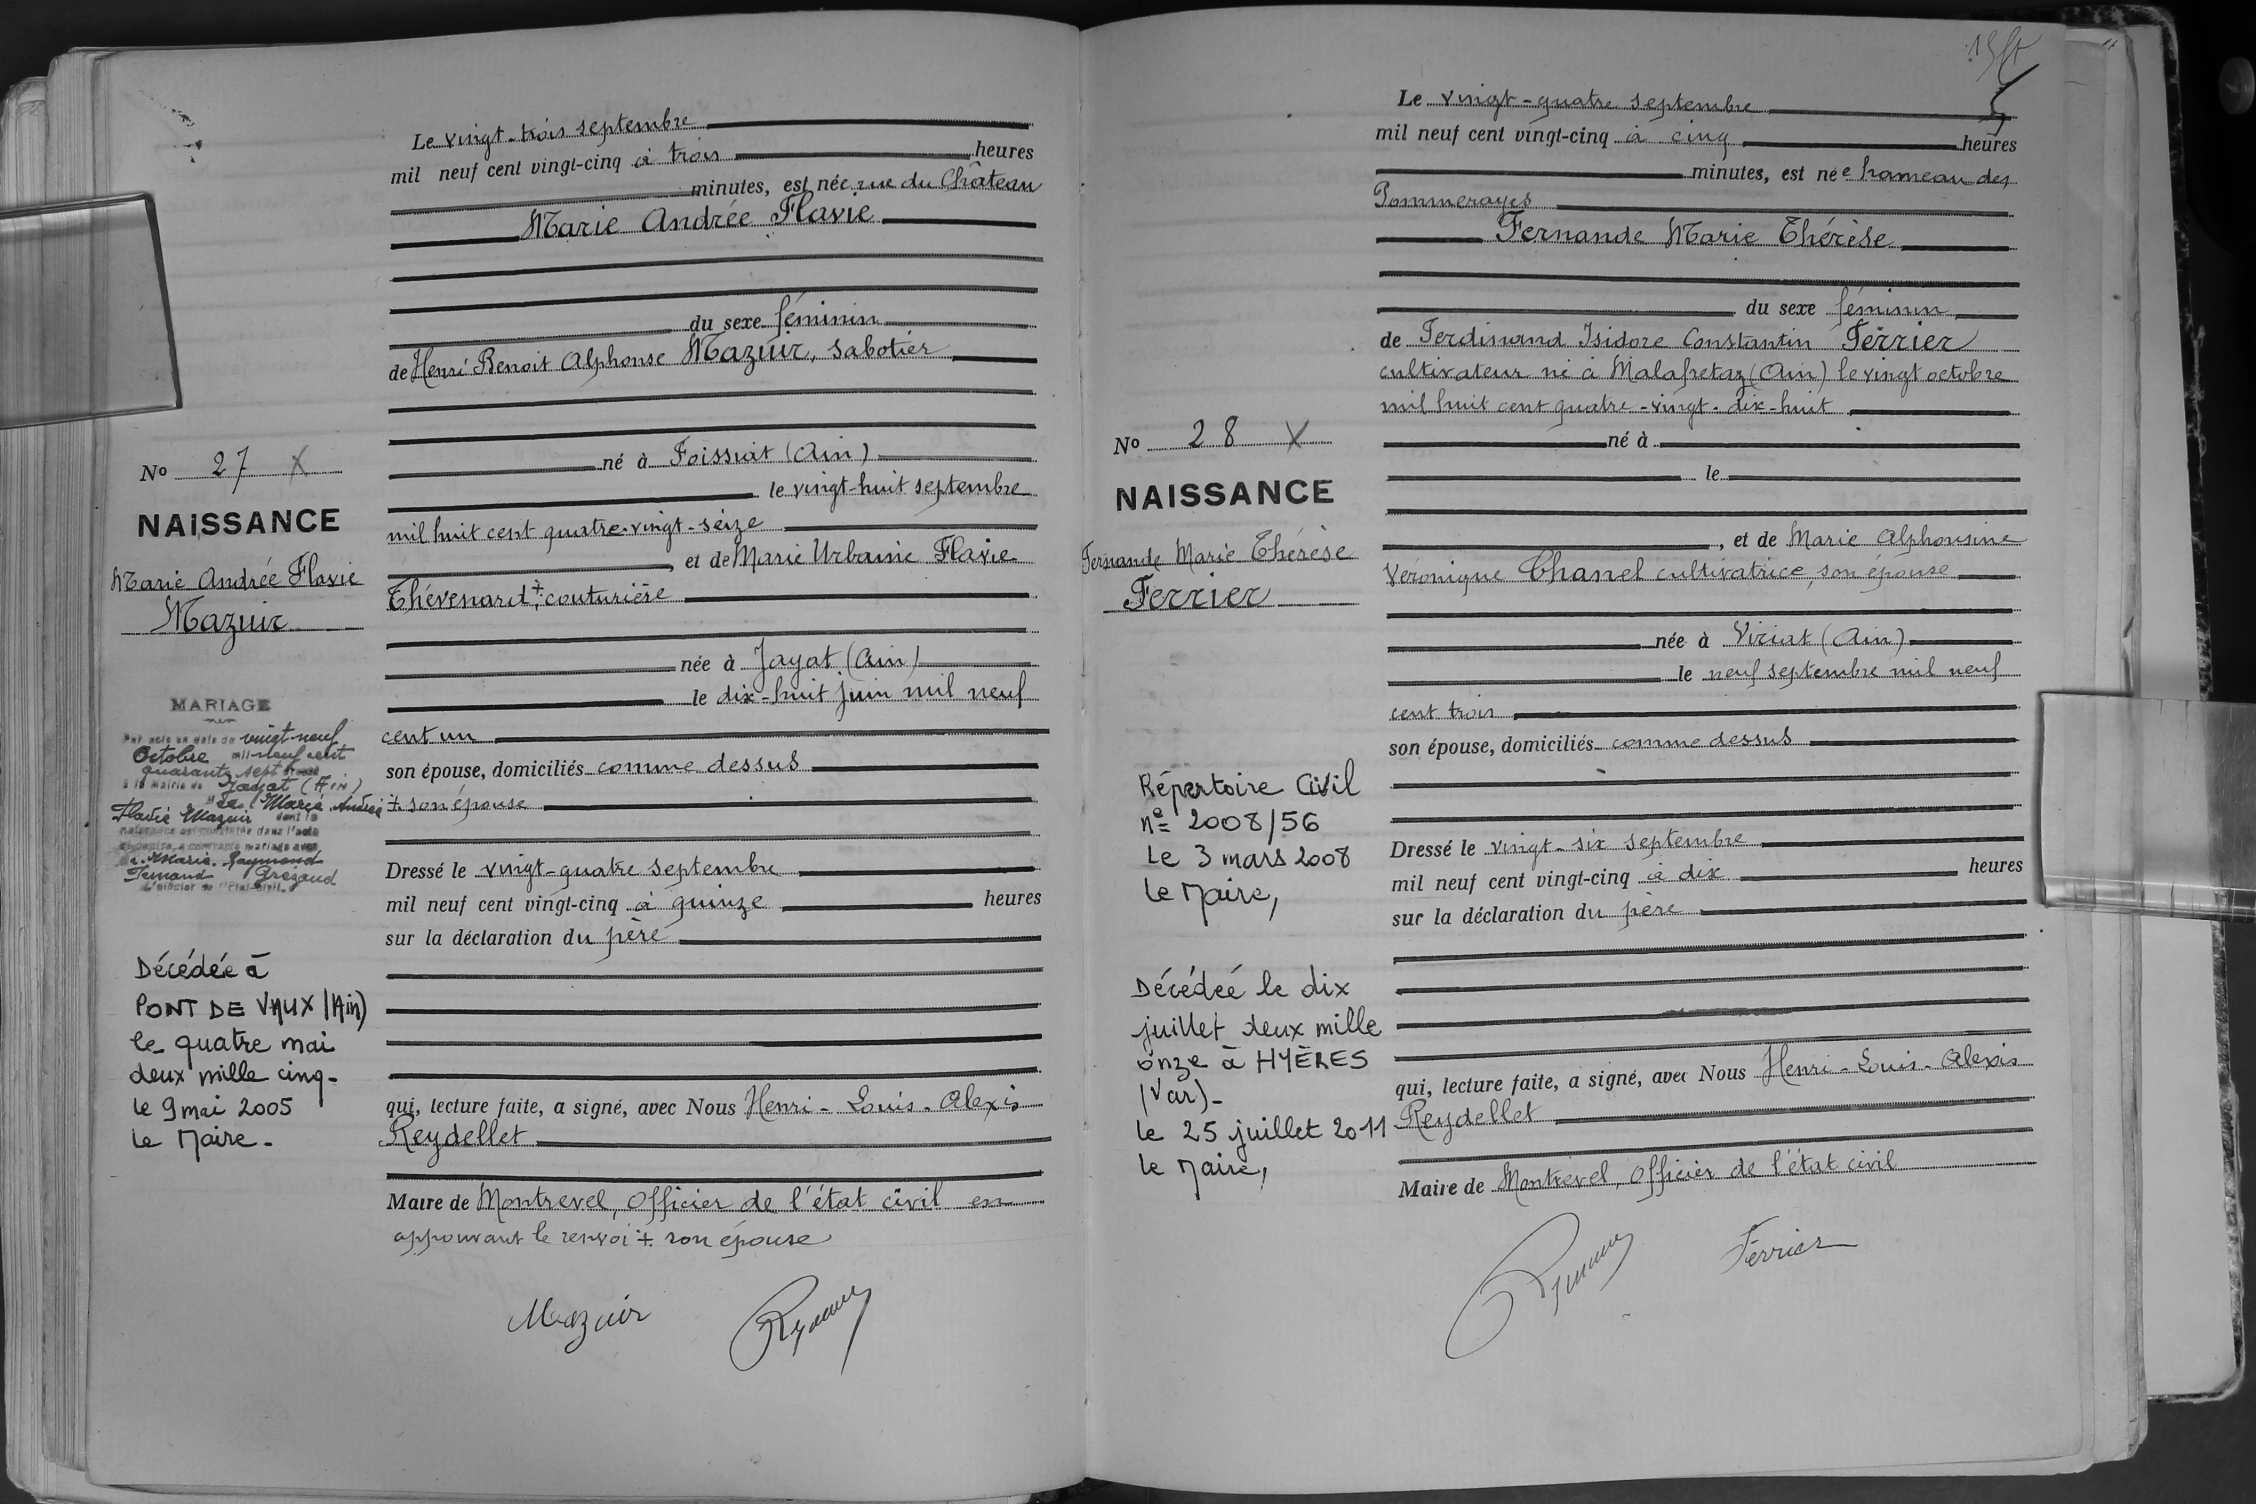 Le vingt-trois septembre
mil neuf cent vingt-cinq à trois heures
minutes, est née rue du Château
Marie Andrée Flavie
du sexe féminin
de Henri Benoit Alphonse Mazuir, sabotier
né à Foissiat (Ain)
le vingt-huit septembre
mil huit cent quatre-vingt-seize
, et de Marie Urbanie Flavie
Thévenard + couturière
née à Jayat (Ain)
le dix-huit juin mil neuf
cent un
son épouse, domiciliés comme dessus
+ son épouse
Dressé le vingt-quatre septembre
mil neuf cent vingt-cinq à quinze heures
sur la déclaration du père
qui, lecture faite, a signé, avec Nous Henri-Louis-Alexis
Reydellet
Maire de Montrevel, Officier de l'état civil en
approuvant le renvoi + son épouse
Mazuir
No 27 X
NAISSANCE
Marie Andrée Flavie
Mazuir
MARIAGE
Par acte en date du vingt-neuf
Octobre mil-neuf cent
quarante sept
à la Mairie de Jayat (Ain)
Marie Andrée
Flavie Mazuir dont la
naissance est constatée dans l'acte
ci-contre, a contracté mariage avec
Marie. Raymond
Fernand
L'officier de l'Etat-civil,
Décédée à
PONT DE VAUX (Ain)
le quatre mai
deux mille cinq-
le 9 mai 2005
Le Maire-
Le vingt-quatre septembre
mil neuf cent vingt-cinq à cinq heures
minutes, est née hameau des
Pommerayes
Fernande Marie Thérèse
du sexe féminin
de Ferdinand Isidore Constantin Ferrier
cultivateur né à Malafretaz (Ain) le vingt octobre
mil huit cent quatre-vingt-dix-huit
né à
le
, et de Marie Alphonsine
Véronique Chanel cultivatrice, son épouse
née à Viriat (Ain)
le neuf septembre mil neuf
cent trois
son épouse, domiciliés comme dessus
Dressé le vingt-six septembre
mil neuf cent vingt-cinq à dix heures
sur la déclaration du père
qui, lecture faite, a signé, avec Nous Henri-Louis-Alexis
Reydellet
Maire de Montrevel, Officier de l'état civil
Ferrier
No 28 X
NAISSANCE
Fernande Marie Thérèse
Ferrier
Répertoire Civil
nº 2008/56
Le 3 mars 2008
Le Maire,
Décédée le dix
juillet deux mille
onze à HYÈRES
(Var)-
le 25 juillet 2011
Le Maire,